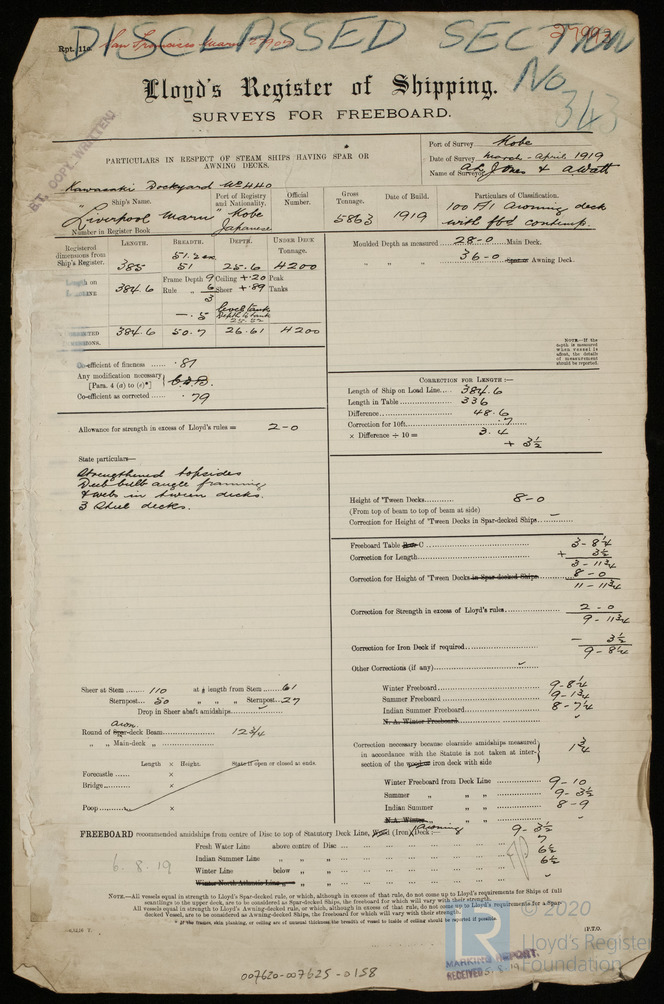 DISCLASSED SECTION
No 343
27992
Rpt. 11c. San Francisco Maru 2902
Lloyd's Register of Shipping.
SURVEYS FOR FREEBOARD.
B.T. COPY WRITTEN
PARTICULARS IN RESPECT OF STEAM SHIPS HAVING SPAR OR
AWNING DECKS.
Port of Survey Kobe
Date of Survey March - April 1919
Name of Surveyor A L Jones & A Watt
Kawasaki Dockyard No 440
Ship's Name. Port of Registry and Nationality. Official Number. Gross Tonnage. Date of Build. Particulars of Classification.
"Liverpool Maru" Kobe Japanese 5863 1919 100 A1 Awning deck
with fbd contemp.
Number in Register Book
Registered dimensions from Ship's Register. LENGTH. BREADTH. DEPTH. UNDER DECK TONNAGE.
51.2
385 51 25.6 4200
Moulded Depth as measured 28-0 Main Deck.
" " " 36-0 Spar or Awning Deck.
Length on 384.6 Frame Depth 9 Ceiling +.20 Peak
Rule " 6 Sheer +.89 Tanks
3
-.5
384.6 50.7 26.61 4200
NOTE—If the depth is measured when vessel is afloat, the details of measurement should be reported.
Co-efficient of fineness .81
Any modification necessary
[Para. 4 (a) to (e)*] C.D.B.
Co-efficient as corrected .79
CORRECTION FOR LENGTH:—
Length of Ship on Load Line 384.6
Length in Table 336
Difference 48.6
Correction for 10ft. .7
× Difference ÷ 10 = 3.4
+ 3½
Allowance for strength in excess of Lloyd's rules = 2-0
State particulars—
Strengthened topsides
Deep bulb angle framing
& webs in tween decks.
3 Steel decks.
Height of 'Tween Decks 8-0
(From top of beam to top of beam at side)
Correction for Height of 'Tween Decks in Spar-decked Ships
Freeboard Table C 3-8¼
Correction for Length + 3½
3-11¾
Correction for Height of 'Tween Decks in Spar-decked Ships 8-0
11-11¾
Correction for Strength in excess of Lloyd's rules 2-0
9-11¾
Correction for Iron Deck if required - 3½
9-8¼
Other Corrections (if any)
Sheer at Stem 110 at ⅛ length from Stem 61
Sternpost 50 " " " Sternpost 27
Drop in Sheer abaft amidships
Awn.
Round of Spar-deck Beam 12¾
" " Main-deck "
Winter Freeboard 9-8¼
Summer Freeboard 9-1¾
Indian Summer Freeboard 8-7¼
N. A. Winter Freeboard
Correction necessary because clearside amidships measured
in accordance with the Statute is not taken at inter-
section of the wood or iron deck with side 1¾
Length × Height. State if open or closed at ends.
Forecastle ×
Bridge ×
Poop ×
Winter Freeboard from Deck Line 9-10
Summer " " " 9-3½
Indian Summer " " 8-9
N.A. Winter " "
FREEBOARD recommended amidships from centre of Disc to top of Statutory Deck Line, Wood (Iron) Awning Deck:— 9-3½
Fresh Water Line above centre of Disc 7
Indian Summer Line " " 6½
Winter Line below " " 6½
Winter North Atlantic Line " "
6.8.19
NOTE.—All vessels equal in strength to Lloyd's Spar-decked rule, or which, although in excess of that rule, do not come up to Lloyd's requirements for Ships of full
scantlings to the upper deck, are to be considered as Spar-decked Ships, the freeboard for which will vary with their strength.
All vessels equal in strength to Lloyd's Awning-decked rule, or which, although in excess of that rule, do not come up to Lloyd's requirements for a Spar
decked Vessel, are to be considered as Awning-decked Ships, the freeboard for which will vary with their strength.
* If the frames, skin planking, or ceiling are of unusual thickness, the breadth of vessel to inside of ceiling should be reported if possible.
P.T.O.
© 2020
Lloyd's Register
Foundation
MARKING REPORT.
RECEIVED 5.8.19
007620-007625-0158